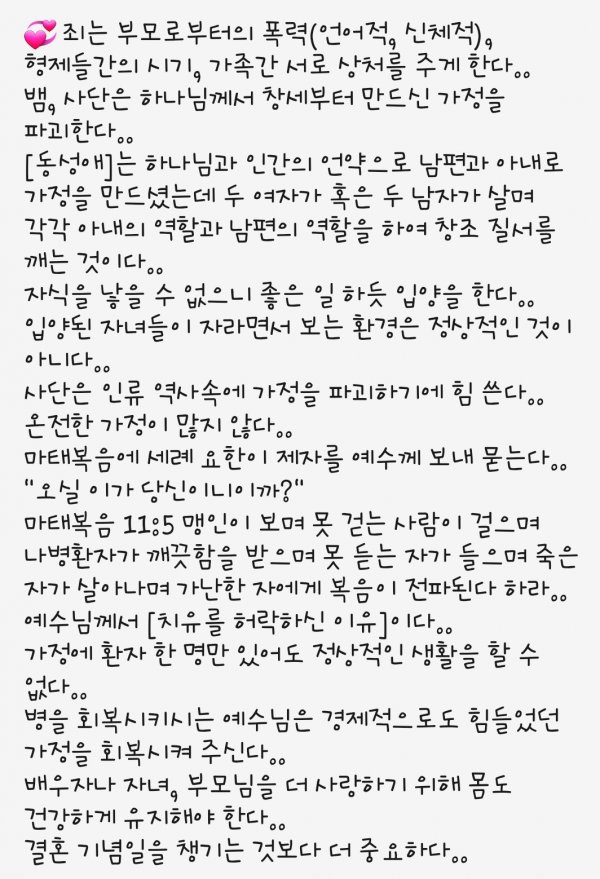 💞죄는 부모로부터의 폭력(언어적, 신체적),
형제들간의 시기, 가족간 서로 상처를 주게 한다。。
뱀, 사단은 하나님께서 창세부터 만드신 가정을
파괴한다。。
[동성애]는 하나님과 인간의 언약으로 남편과 아내로
가정을 만드셨는데 두 여자가 혹은 두 남자가 살며
각각 아내의 역할과 남편의 역할을 하여 창조 질서를
깨는 것이다。。
자식을 낳을 수 없으니 좋은 일 하듯 입양을 한다。。
입양된 자녀들이 자라면서 보는 환경은 정상적인 것이
아니다。。
사단은 인류 역사속에 가정을 파괴하기에 힘 쓴다。。
온전한 가정이 많지 않다。。
마태복음에 세례 요한이 제자를 예수께 보내 묻는다。。
"오실 이가 당신이니이까?"
마태복음 11:5 맹인이 보며 못 걷는 사람이 걸으며
나병환자가 깨끗함을 받으며 못 듣는 자가 들으며 죽은
자가 살아나며 가난한 자에게 복음이 전파된다 하라。。
예수님께서 [치유를 허락하신 이유]이다。。
가정에 환자 한 명만 있어도 정상적인 생활을 할 수
없다。。
병을 회복시키시는 예수님은 경제적으로도 힘들었던
가정을 회복시켜 주신다。。
배우자나 자녀, 부모님을 더 사랑하기 위해 몸도
건강하게 유지해야 한다。。
결혼 기념일을 챙기는 것보다 더 중요하다。。